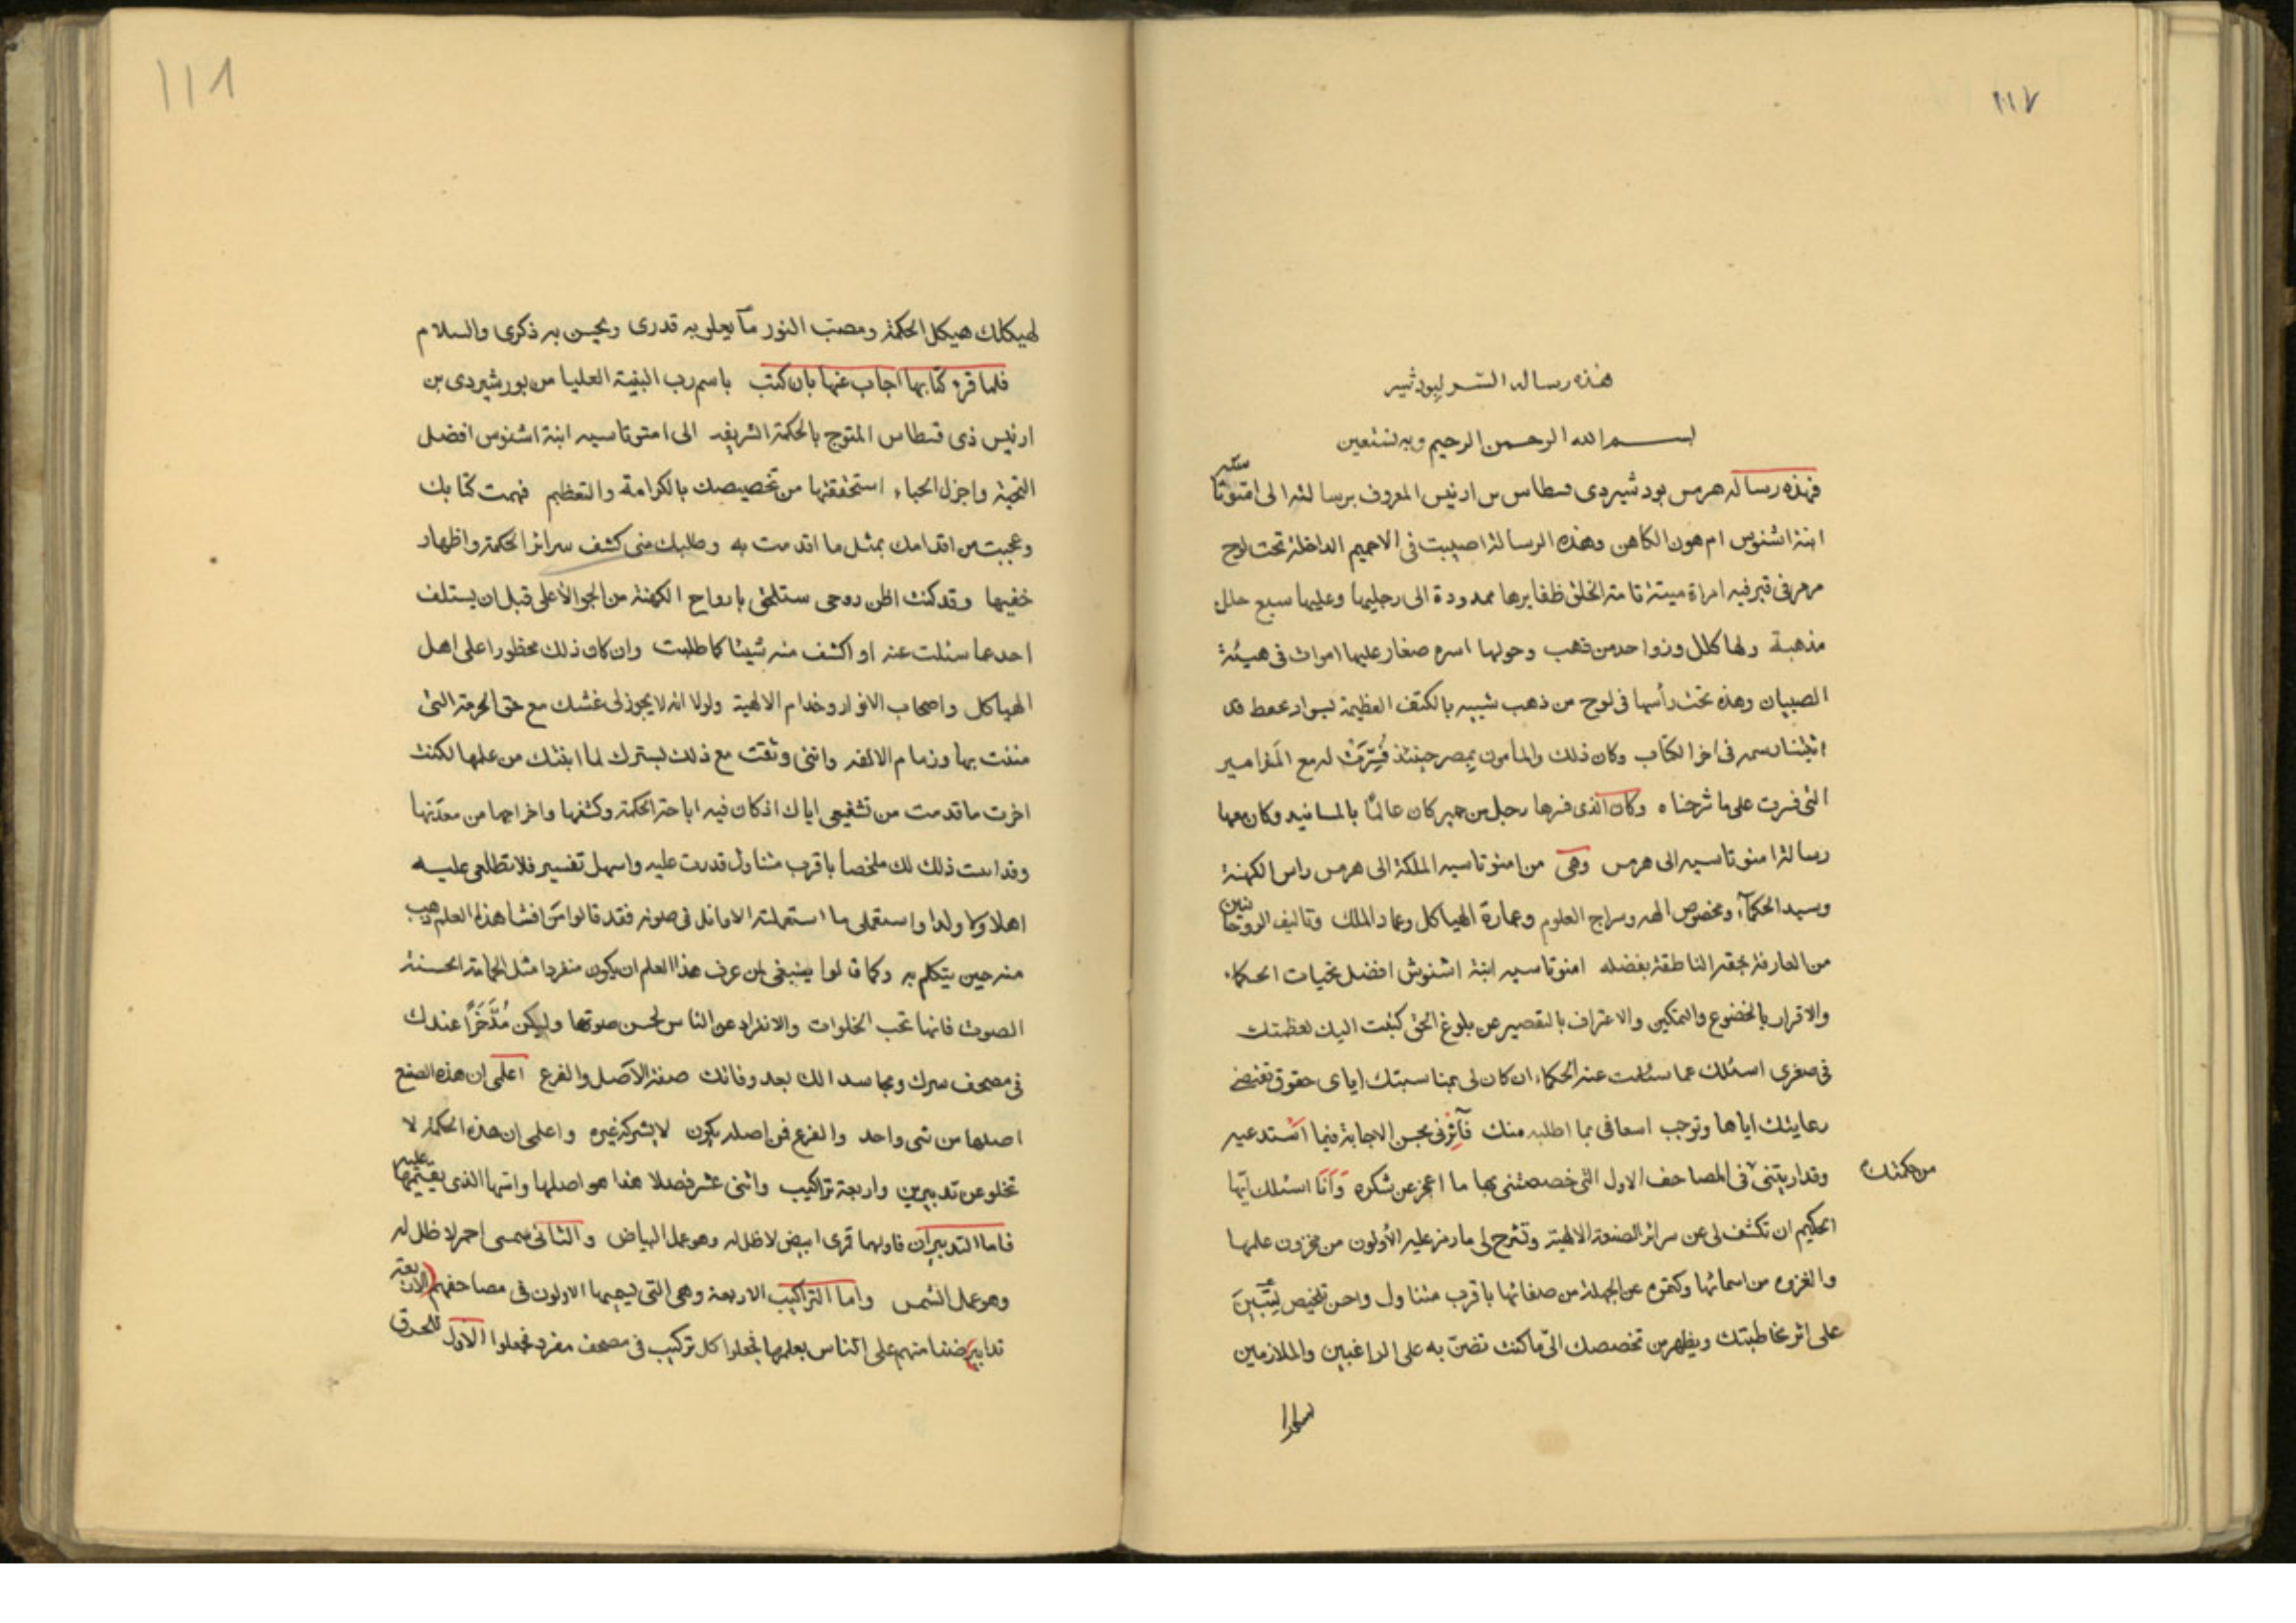 ١١٧
هذه رسالة السر لبودشير
بسم الله الرحمن الرحيم وبه نستعين
فهذه رسالة هرمس بودشيردى قسطاس بن ارنيس المعروف برسالته الى امنوتا سيه
ابنة اشنوس ام هون الكاهن وهذه الرسالة اصيبت فى الاخميم الداخلة تحت لوح
مرمر فى قبر فيه امراة ميتة تامة الخلق ظفايرها ممدودة الى رجليها وعليها سبع حلل
مذهبة ولها كلل وزواحد من ذهب وحولها اسره صغار عليها اموات فى هيئة
الصبيان وهذه تحت رأسها فى لوح من ذهب شبيه بالكتف العظيمة بسواد
فى اخر الكتاب وكان ذلك والمأمون بمصر حينئذ فُسِّرَتْ له مع المَزامير
التى فسرت على ما شرحناه وكان الذى فسرها رجل من حمير كان عالمًا بالمسانيد وكان معها
رسالة امنوتاسيه الى هرمس وهى من امنوتاسيه الملكة الى هرمس راس الكهنة
وسيد الحكمآء ومخصوص الهه وسراج العلوم وعمارة الهياكل وعماد الملك وتاليف الروحانيين
من العارفة بحقه الناطقة بفضله امنوتاسيه ابنة اشنوش افضل تحيات الحكماء
والاقرار بالخضوع والتمكين والاعتراف بالتقصير عن بلوغ الحق كتبت اليك لعظمتك
فى صغرى اسئلك عما سئلت عنه الحكماء ان كان لى بمناسبتك اياى حقوق تقتضى
رعايتك اياها وتوجب اسعافى بما اطلبه منك فآثِرْنى بحسن الاجابة فيما استدعيه
من حكمتك
وقد اريتنى فى المصاحف الاول التى خصصتنى بها ما اعجز عن شكره وَأَنَا اسئلك ايّها
الحكيم ان تكشف لى عن سرائر الصنعة الالهية وتشرح لى ما رمز عليه الأولون من مخزون علمها
والغزوه من اسمائها وكتموه عن الجهلة من صفاتها باقرب متناول واحسن تلخيص ليتبين
على اثر مخاطبتك ويظهر من تخصصك الىّ ما كنت تضنّ به على الراغبين والملازمين
١١٨
لهيكلك هيكل الحكمة ومصبّ النور مآ يعلو به قدرى ويحسن به ذكرى والسلام
فلما قره كتابها اجاب عنها بان كتب باسم رب البنية العليا من بورشيردى بن
ارنيس ذى قسطاس المتوج بالحكمة الشريفة الى امتوتاسيه ابنة اشنوس افضل
التحية واجزل الحباء استحققتها من تخصيصك بالكرامة والتعظيم فهمت كتابك
وعجبت من اقدامك بمثل ما اقدمت به وطلبك منى كشف سرائر الحكمة واظهار
خفيها وقد كنت اظن روحى ستلتقى بارواح الكهنة من الجو الأعلى قبل ان يستلف
احد عما سئلت عنه او اكشف منه شيئا كما طلبت وان كان ذلك محظورا على اهل
الهياكل واصحاب الانوار وخدام الالهية ولولا انه لا يجوز لى غشك مع حق الحرمة التى
متتت بها وزمام الالفة واننى وثقت مع ذلك بسترك لما ابثثك من علمها لكنت
اخرت ما قدمت من تشفيعى اياك اذ كان فيه اباحة الحكمة وكشفها واخراجها من معدنها
وقد اتيت ذلك لك ملخصاً باقرب متناول قدرت عليه واسهل تفسير فلا تطلعى عليه
اهلا ولا ولدا واستعملى ما استعملته الاوائل فى صونه فقد قالوا من افشا هذا العلم ذهب
منه حين يتكلم به وكما قالوا ينبغى لمن عرف هذا العلم ان يكون منفردا مثل الحمامة الحسنة
الصوت فانها تحب الخلوات والانفراد عن الناس لحسن صوتها وليكن مُدَّخَرًا عندك
فى مصحف سرك ومجاسدا لك بعد وفاتك صفة الاصل والفرع اعلمى ان هذه الصنع
اصلها من شى واحد والفرع من اصله يكون لا يشركه غيره واعلمى ان هذه الحكمة لا
تخلو عن تدبيرين واربعة تراكيب واثنى عشر فصلا هذا هو اصلها واسها الذى يقيمها عليه
فاما التدبيران فاولهما قمرى ابيض لا ظل له وهو عمل البياض والثانى شمسى احمر لا ظل له
وهو عمل الشمس واما التراكيب الاربعة وهى التى يسميها الاولون فى مصاحفهم الاربعة
تدابير ضننا منهم على الناس بعلمها فجعلوا كل تركيب فى مصحف مفرد فجعلوا الاول للحرق